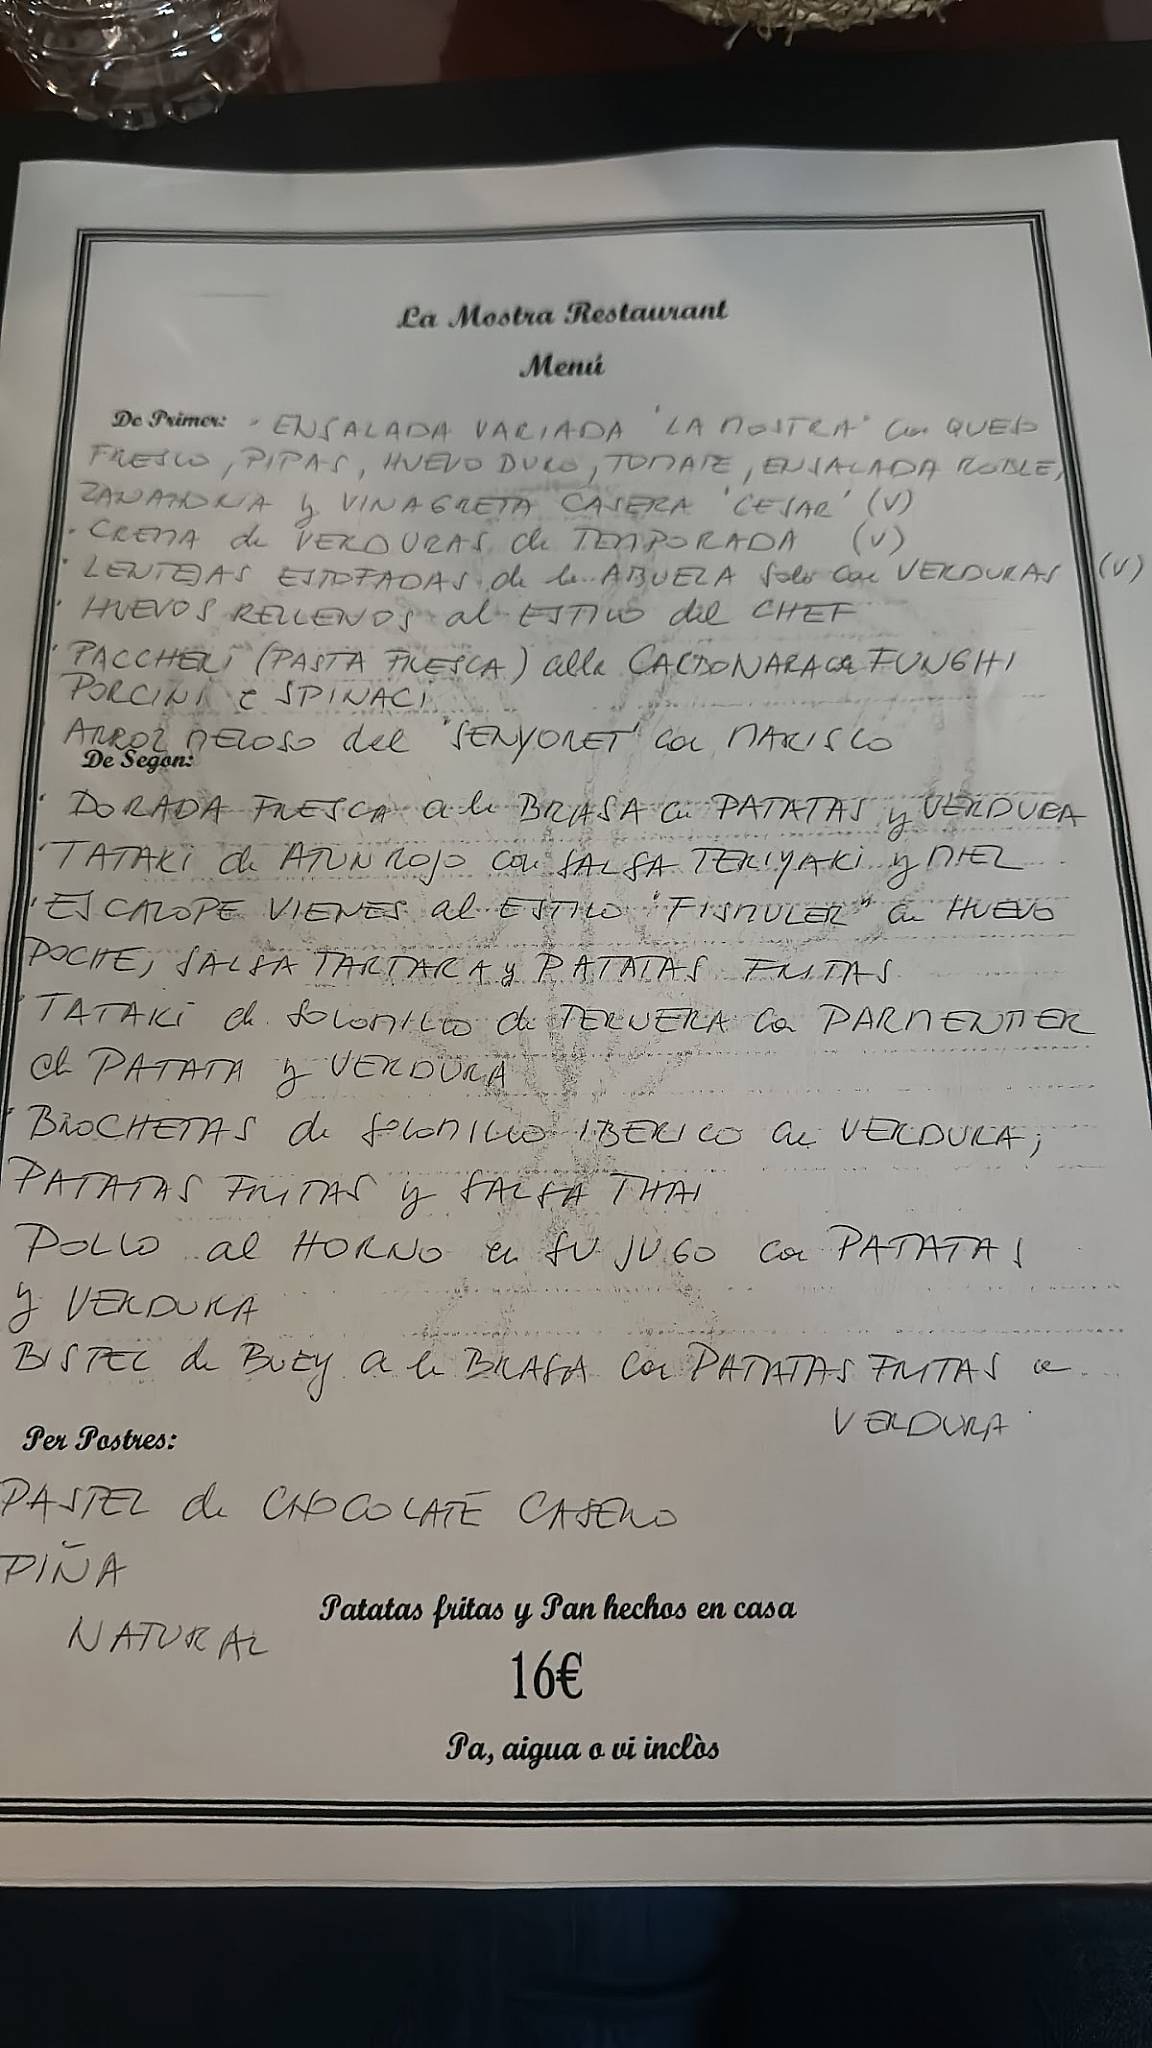 La Mostra Restaurant
Menú
De Primer: · ENSALADA VARIADA 'LA MOSTRA' con QUESO
FRESCO, PIPAS, HUEVO DURO, TOMATE, ENSALADA ROBLE,
ZANAHORIA y VINAGRETA CASERA 'CESAR' (V)
· CREMA de VERDURAS de TEMPORADA (V)
· LENTEJAS ESTOFADAS de la ABUELA solo con VERDURAS (V)
· HUEVOS RELLENOS al ESTILO del CHEF
· PACCHERI (PASTA FRESCA) alla CARBONARA con FUNGHI
PORCINI e SPINACI
· ARROZ MELOSO del 'SENYORET' con MARISCO
De Segon:
· DORADA FRESCA a la BRASA con PATATAS y VERDURA
· TATAKI de ATUN ROJO con SALSA TERIYAKI y MIEL
· ESCALOPE VIENES al ESTILO "FISMULER" con HUEVO
POCHE, SALSA TARTARA y PATATAS FRITAS
· TATAKI de SOLOMILLO de TERNERA con PARMENTIER
de PATATA y VERDURA
· BROCHETAS de SOLOMILLO IBERICO con VERDURA,
PATATAS FRITAS y SALSA THAI
POLLO al HORNO en SU JUGO con PATATAS
y VERDURA
BISTEC de BUEY a la BRASA con PATATAS FRITAS o
VERDURA
Per Postres:
PASTEL de CHOCOLATE CASERO
PIÑA
NATURAL
Patatas fritas y Pan hechos en casa
16€
Pa, aigua o vi inclòs